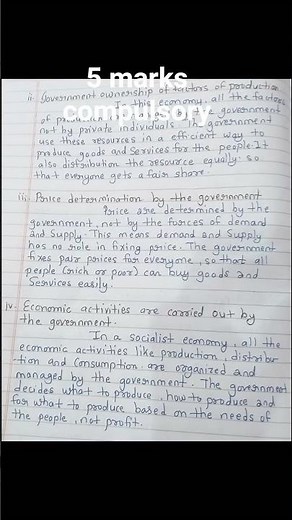 5 marks
compulsory
ii. Government ownership of factors of production
In this economy, all the factors
of production government
not by private individuals. The government
use these resources in a efficient way to
produce goods and services for the people. It
also distribution the resource equally. so
that everyone gets a fair share.
iii. Price determination by the government
Price are determined by the
government, not by the forces of demand
and Supply. This means demand and Supply
has no role in fixing price. The government
fixes pair prices for everyone, so that all
people (rich or poor) can buy goods and
Services easily.
iv. Economic activities are carried out by
the government.
In a socialist economy, all the
economic activities like production, distribu-
tion and consumption are organized and
managed by the government. The government
decides what to produce, how to produce and
for what to produce based on the needs of
the people, not profit.